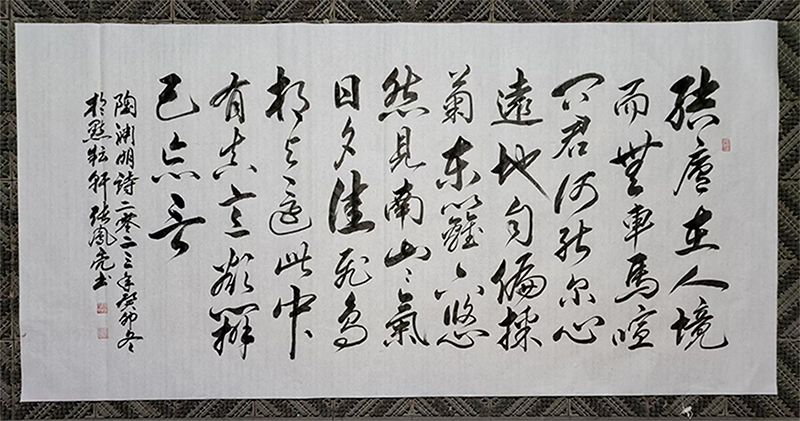 結廬在人境
而無車馬喧
问君何能尔心
遠地自偏採
菊東籬下悠
然見南山々氣
日夕佳飛鳥
相与還此中
有真意欲辨
已忘言
陶渊明詩二零二三年癸卯冬
於默耘軒張鳳亮书